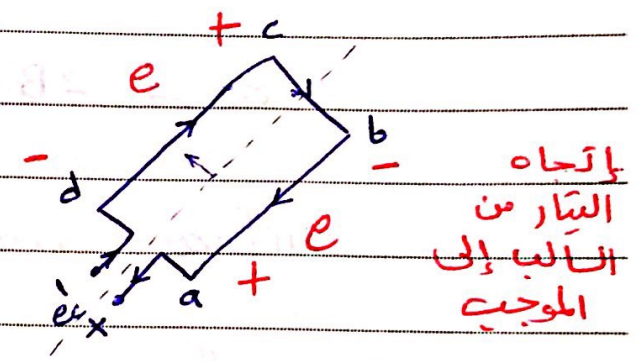 + c
e
b
-
-
d
e
a
+
x
إتجاه
التيار من
السالب إلى
الموجب